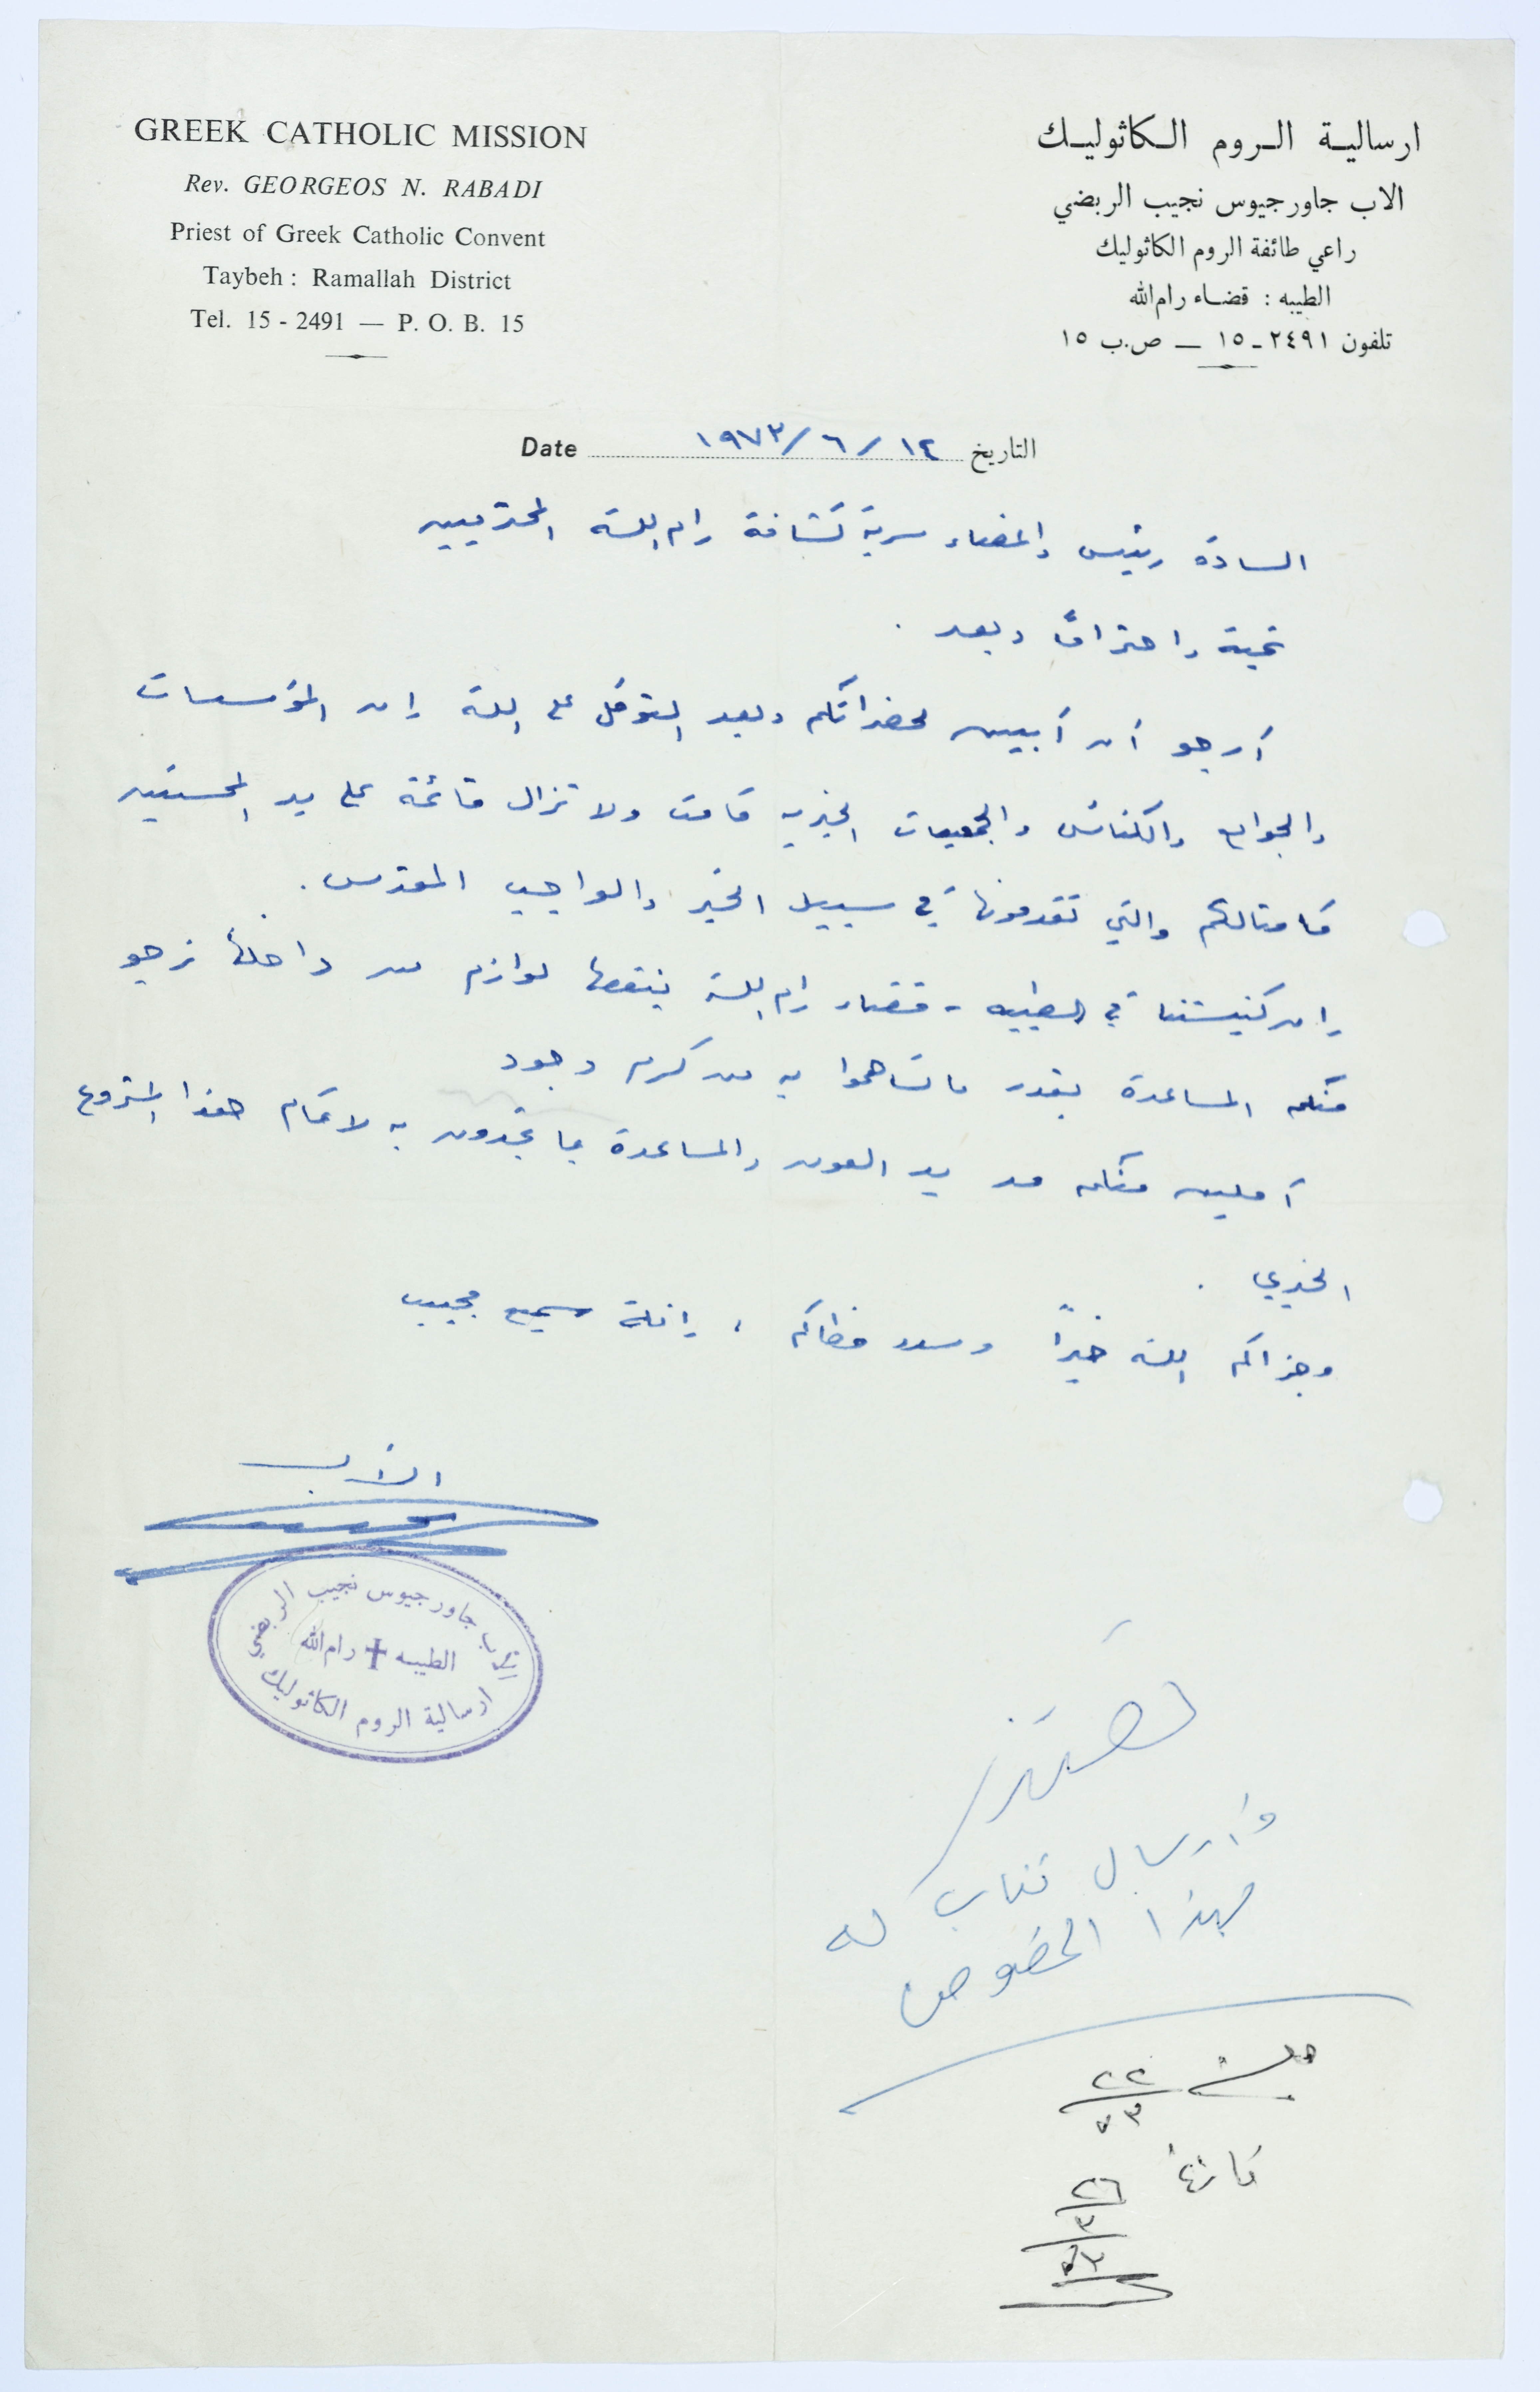 GREEK CATHOLIC MISSION
Rev. GEORGEOS N. RABADI
Priest of Greek Catholic Convent
Taybeh : Ramallah District
Tel. 15 - 2491 — P. O. B. 15
ارسالية الروم الكاثوليك
الاب جاورجيوس نجيب الربضي
راعي طائفة الروم الكاثوليك
الطيبه : قضاء رام الله
تلفون ٢٤٩١ - ١٥ — ص.ب ١٥
Date ١٩٧٣/٦/١٢ التاريخ
السادة رئيس واعضاء سرية كشافة رام الله المحترمين
تحية واحتراماً وبعد .
أرجو أن أبين لحضراتكم وبعد التوكل على الله إن المؤسسات
والجوامع والكنائس والجمعيات الخيرية قامت ولا تزال قائمة على يد المحسنين
كامثالكم والتي تقدمونها في سبيل الخير والواجب المقدس .
إن كنيستنا في الطيبه - قضاء رام الله ينقصها لوازم من داخلها نرجو
منكم المساعدة بقدر ما تساهموا به من كرم وجود
آملين منكم مد يد العون والمساعدة بما تجدون به لاتمام هذا المشروع
الخيري .
وجزاكم الله خيراً وسدد خطاكم ، إنه سميع مجيب
الأب
الاب جاورجيوس نجيب الربضي
الطيبه رام الله
ارسالية الروم الكاثوليك
نعتذر
وارسال كتاب له
بهذا الخصوص
جلسة ٢٢
٢٦